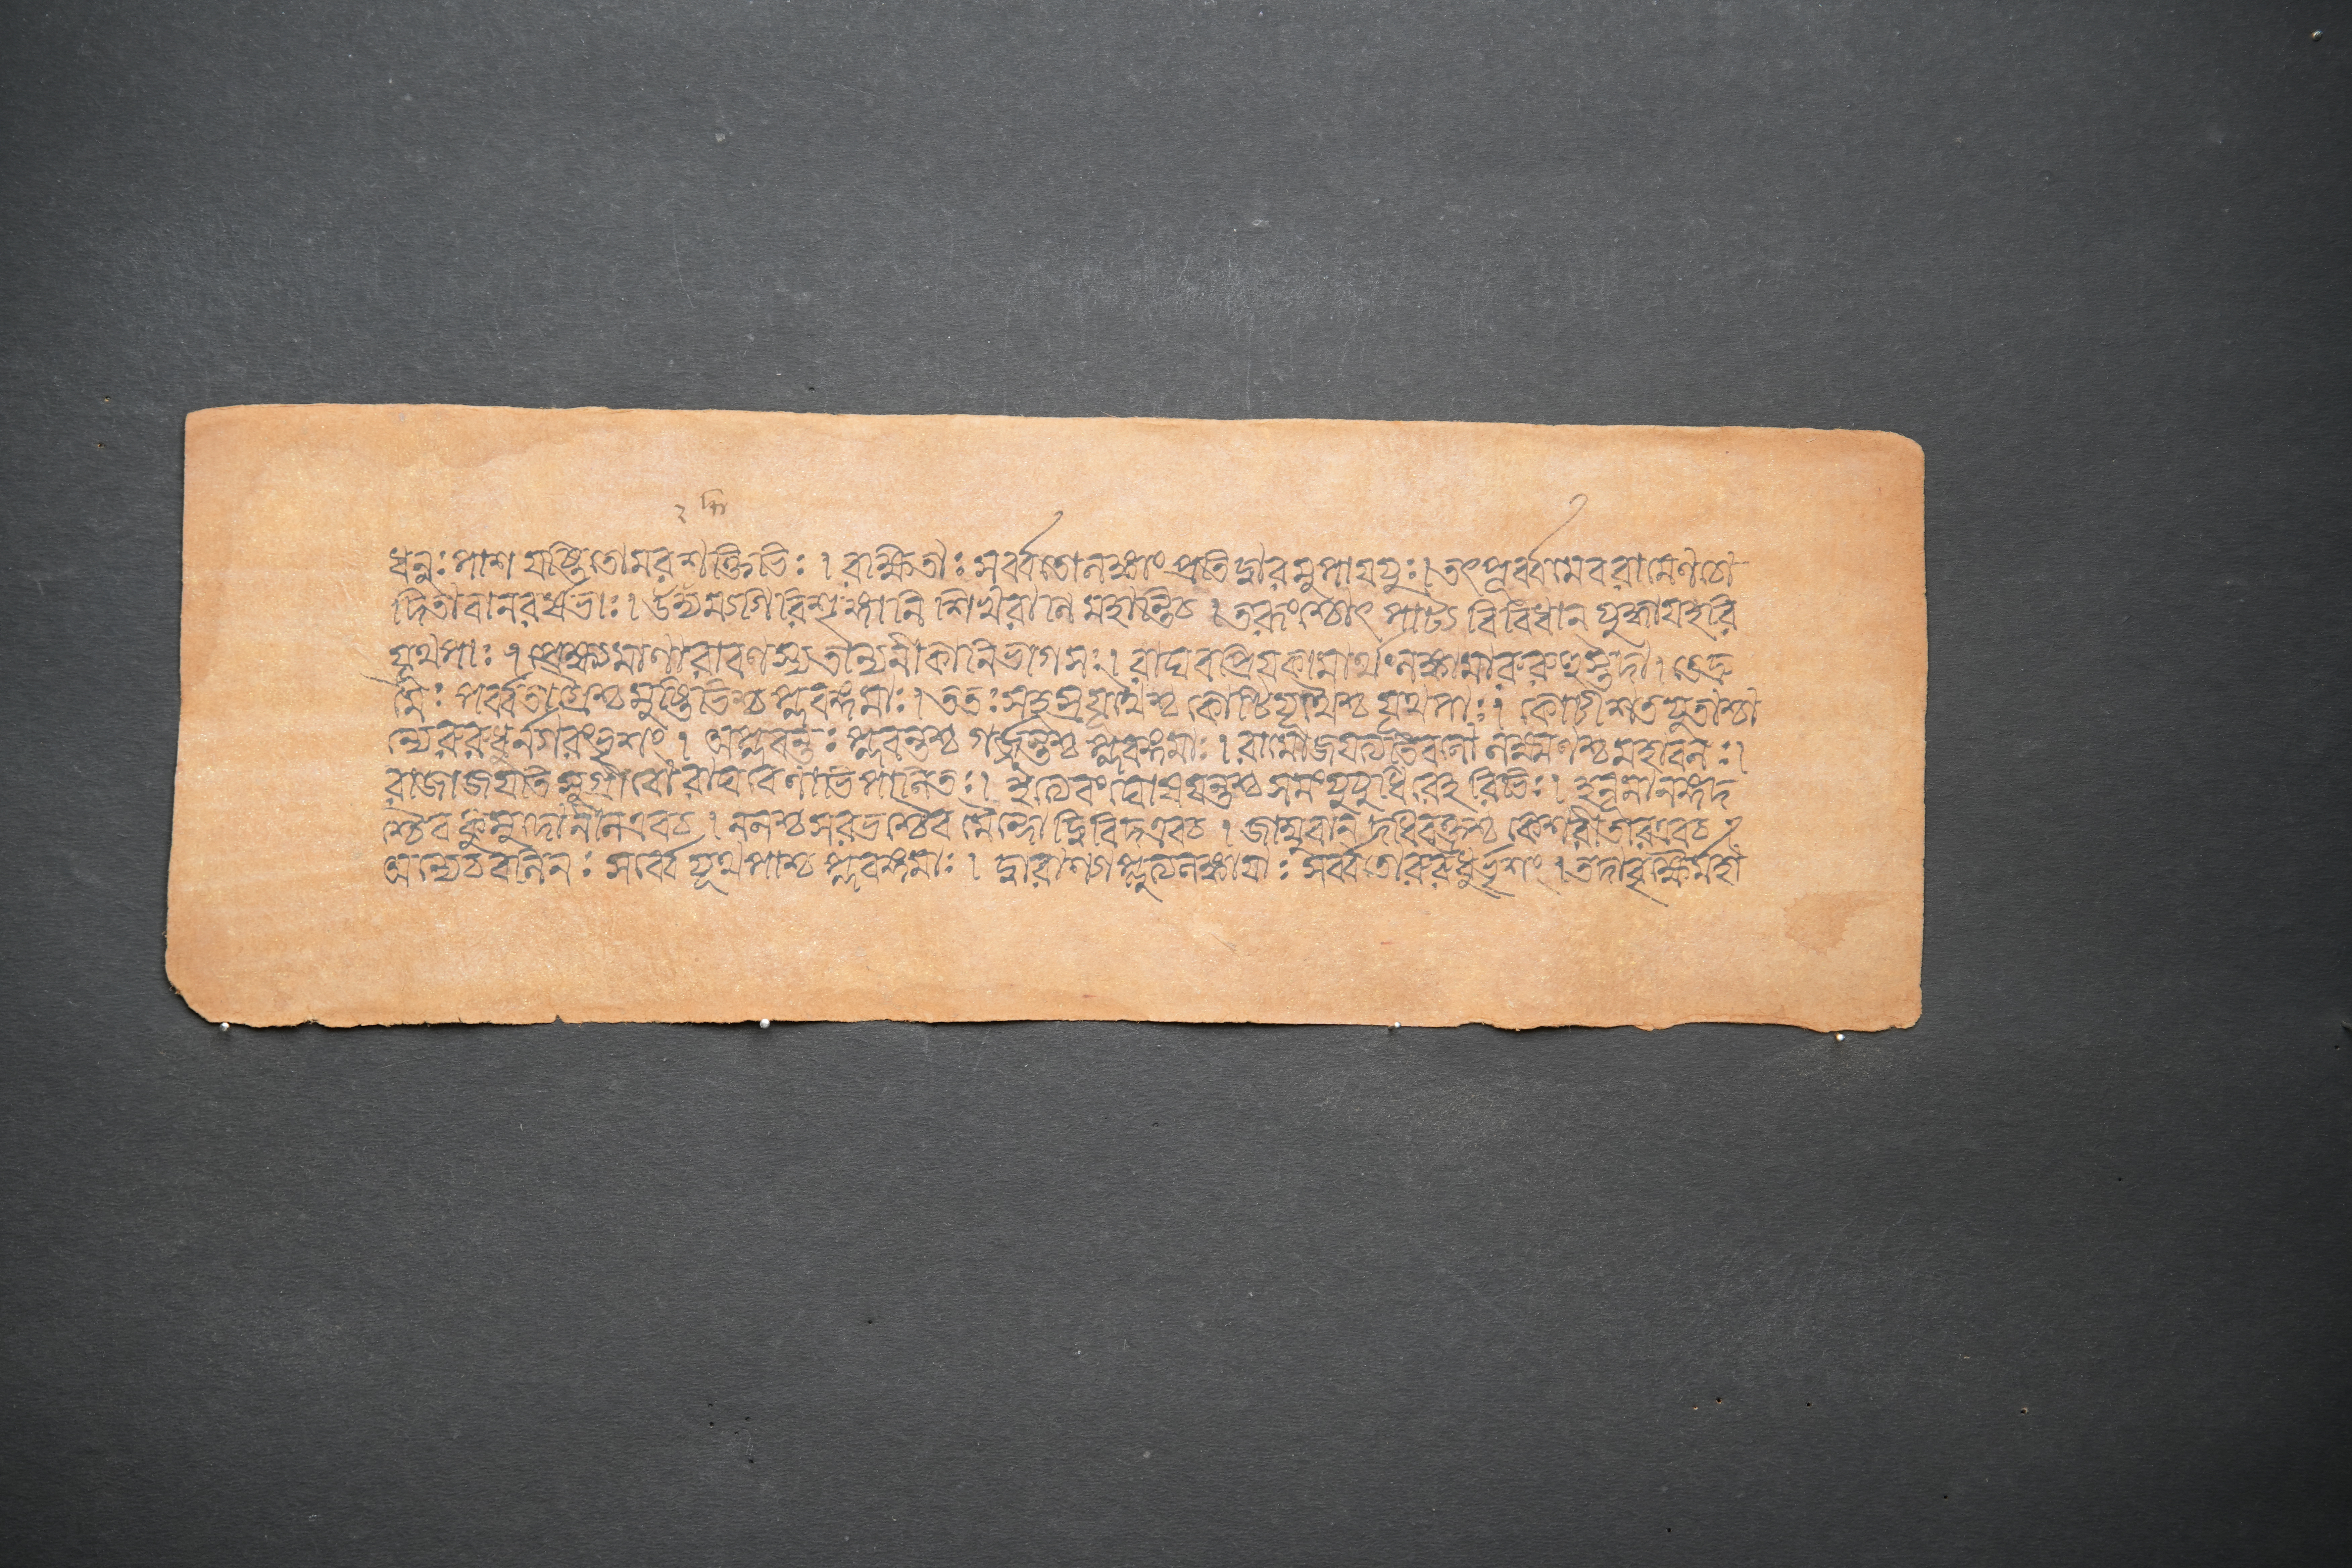 ধনুঃপাশযষ্টিতোমরশক্তিভিঃ। রাক্ষিতাঃ সর্ব্বতোলঙ্কাং প্রতিদ্বারমুপাযযুঃ। তৎপূর্ব্বমেবরামেণচো
দিতাবানরর্ষভাঃ। উদ্যম্যগিরিশৃঙ্গানি শিখরাণি মহান্তিচ। তরূংশ্চোৎপাট্য বিবিধান্ যুদ্ধাযহরি
যূথপাঃ। প্রেক্ষ্যমাণারাবণস্যতান্যনীকানিভাগসঃ। রাঘবপ্রিয়কামার্থংলঙ্কামারুরুহুস্তদা। তেদ্রু
মৈঃ পর্ব্বতাগ্রৈশ্চমুষ্টিভিশ্চপ্লবঙ্গমাঃ। ততঃ সহস্রযূথাশ্চ কোটিযূথাশ্চযূথপাঃ। কোটীশতযুতাশ্চা
ন্যেরুরুধুর্নগরংভৃশং। আপ্লবন্তঃ প্লবন্তশ্চ গর্জ্জন্তশ্চ প্লবঙ্গমাঃ। রামোজযত্যতিবলো লক্ষ্মণশ্চমহাবলঃ।
রাজাজযতিসুগ্রীবো রাঘবেণাভিপালিতঃ। ইত্যেবংঘোষযন্তশ্চসমংযুযুধিরেহরিভিঃ। হনূমানঙ্গদ
শ্চৈব কুমুদোনীলএবচ। নলশ্চসরভশ্চৈব মৈন্দোদ্বিবিদএবচ। জাম্ববান্ দধিবক্ত্রশ্চ কেশরীতারএবচ
অন্যেচবলিনঃ সর্ব্বেযূথপাশ্চপ্লবঙ্গমাঃ। দ্বারাণ্যাপ্লুত্যলঙ্কাযাঃ সর্ব্বতোরুরুধুর্ভৃশং। তদাবৃক্ষৈর্মহা